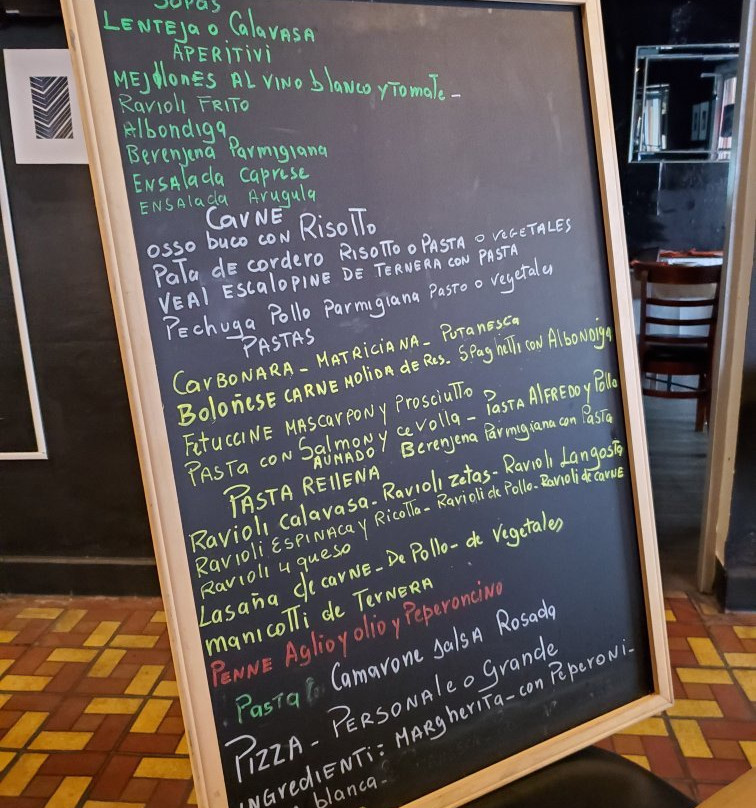 Sopas
LENTEJA o CalavASA
APERITIVI
MEJIlONES AL VINO blANCO y TOMATE -
Ravioli FRITO
Albondiga
Berenjena Parmigiana
ENSAlada Caprese
ENSAlada Arugula
CarNE
OSSO buco CON RisoTTo
PaTa de cordero RisoTTo o PASTA o VEGETALES
VEAl EscalopiNE DE TERNERA CON PASTA
PEchuga Pollo Parmigiana PASTO o vegetales
PASTAS
CarBONARA - MATRICIANA - PUTANESCA
Boloñese CARNE MOLIDA de Res. Spaghetti con AlboNdiga
Fetuccine MAScarpoN y Prosciutto
PASTA CON Salmon AUMADO y cevolla - PasTA AlFREDO y Pollo
Berenjena Parmigiana con PaSTA
PASTA REllENA
Ravioli calavasa - Ravioli zetas - Ravioli Langosta
Ravioli ESPINACA y Ricotta - Ravioli de Pollo - Ravioli de carNE
Ravioli 4 queso
Lasaña de carNE - De Pollo - de vegetales
maNicoTTi de TerNERA
PENNE Aglio y olio y Peperoncino
Pasta Camarone SalsA Rosada
PIZZA - PERSONAle o Grande
INGredIENTi: MARgheriTA - con PepeRoNi -
blanca -